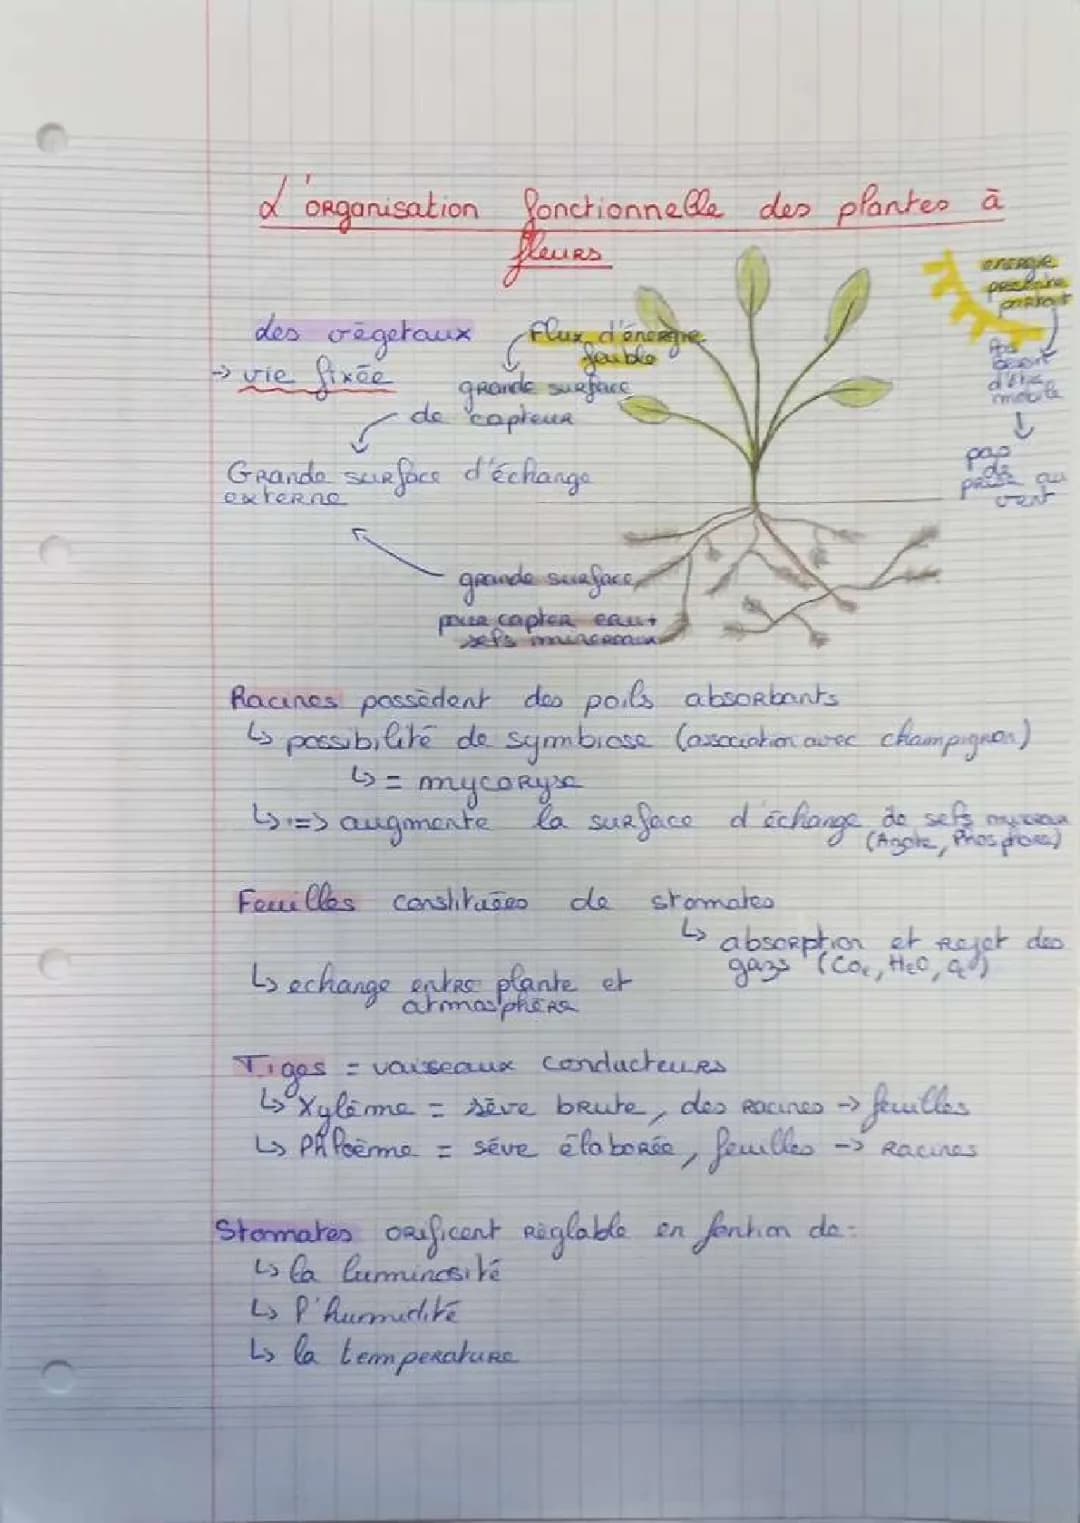 L'organisation fonctionnelle des plantes à
fleurs
des végétaux
→ vie fixée
Flux d'énergie
faible
grande surface
de capteur
Grande surface d'échange
externe
énergie
présente
partout
pas
besoin
d'être
mobile
pas
de
prise au
vent
grande surface
pour capter eau +
sels minéraux
Racines possèdent des poils absorbants
↳ possibilité de symbiose (association avec champignon)
↳ = mycoryse
↳ => augmente la surface d'échange de sels minéraux
(Azote, Phosphore)
Feuilles constituées de stomates
↳ absorption et rejet des
gazs (CO₂, H₂O, O₂)
↳ echange entre plante et
atmosphère
Tiges = vaisseaux conducteurs
↳ Xylème = sève brute, des racines → feuilles
↳ Phloème = séve élaborée, feuilles → Racines
Stomates orificent réglable en fontion de :
↳ la luminosité
↳ l'humidité
↳ la temperature